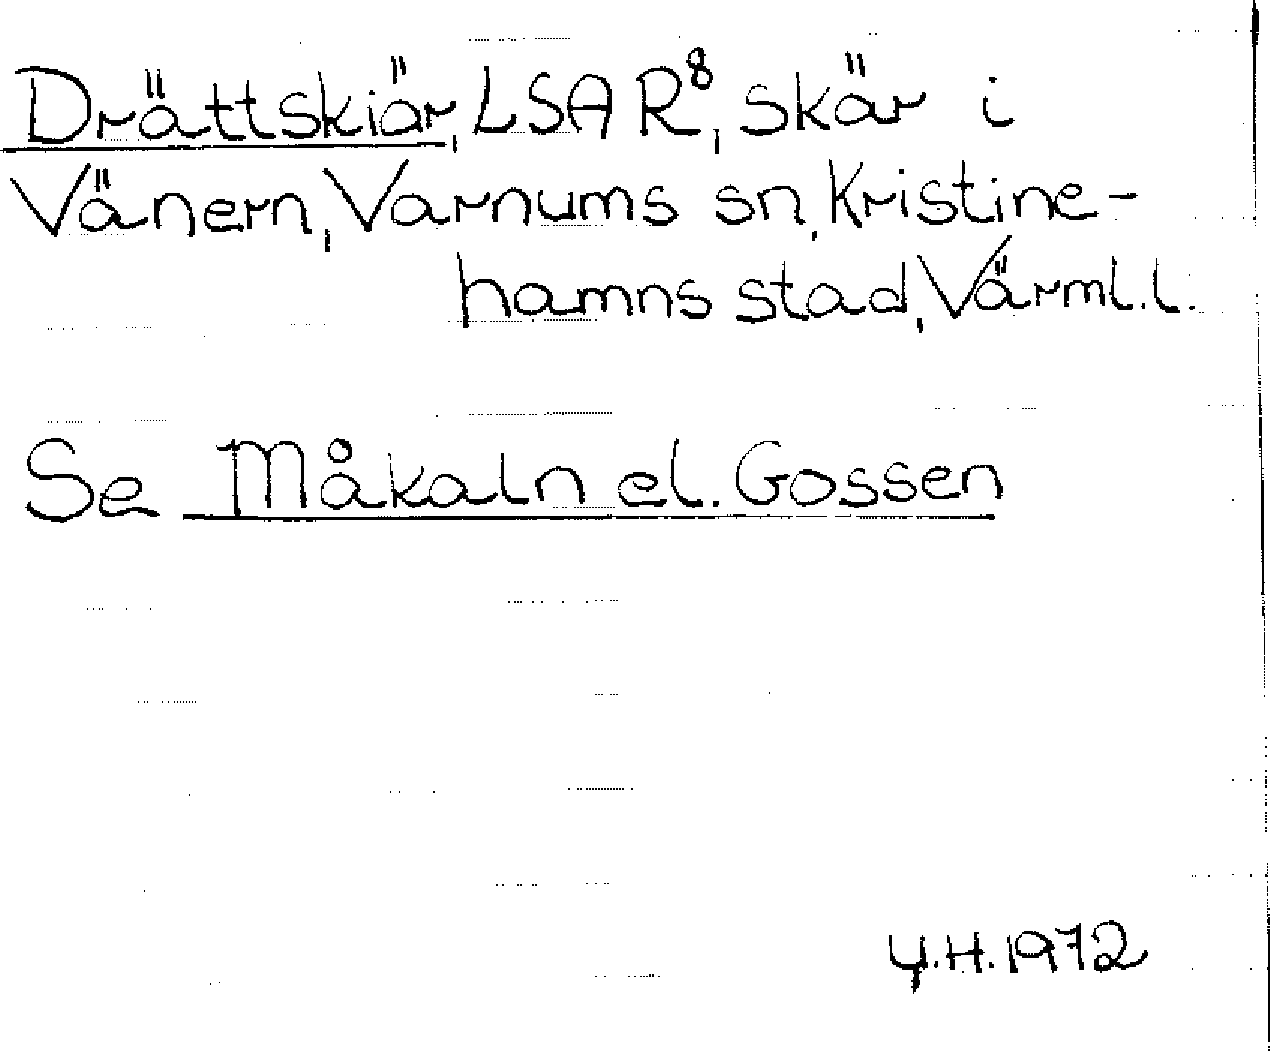 Drättskiär, LSA R⁸, skär i
Vänern, Varnums sn, Kristine-
hamns stad, Värml. l.
Se Måkaln el. Gossen
Y.H. 1972